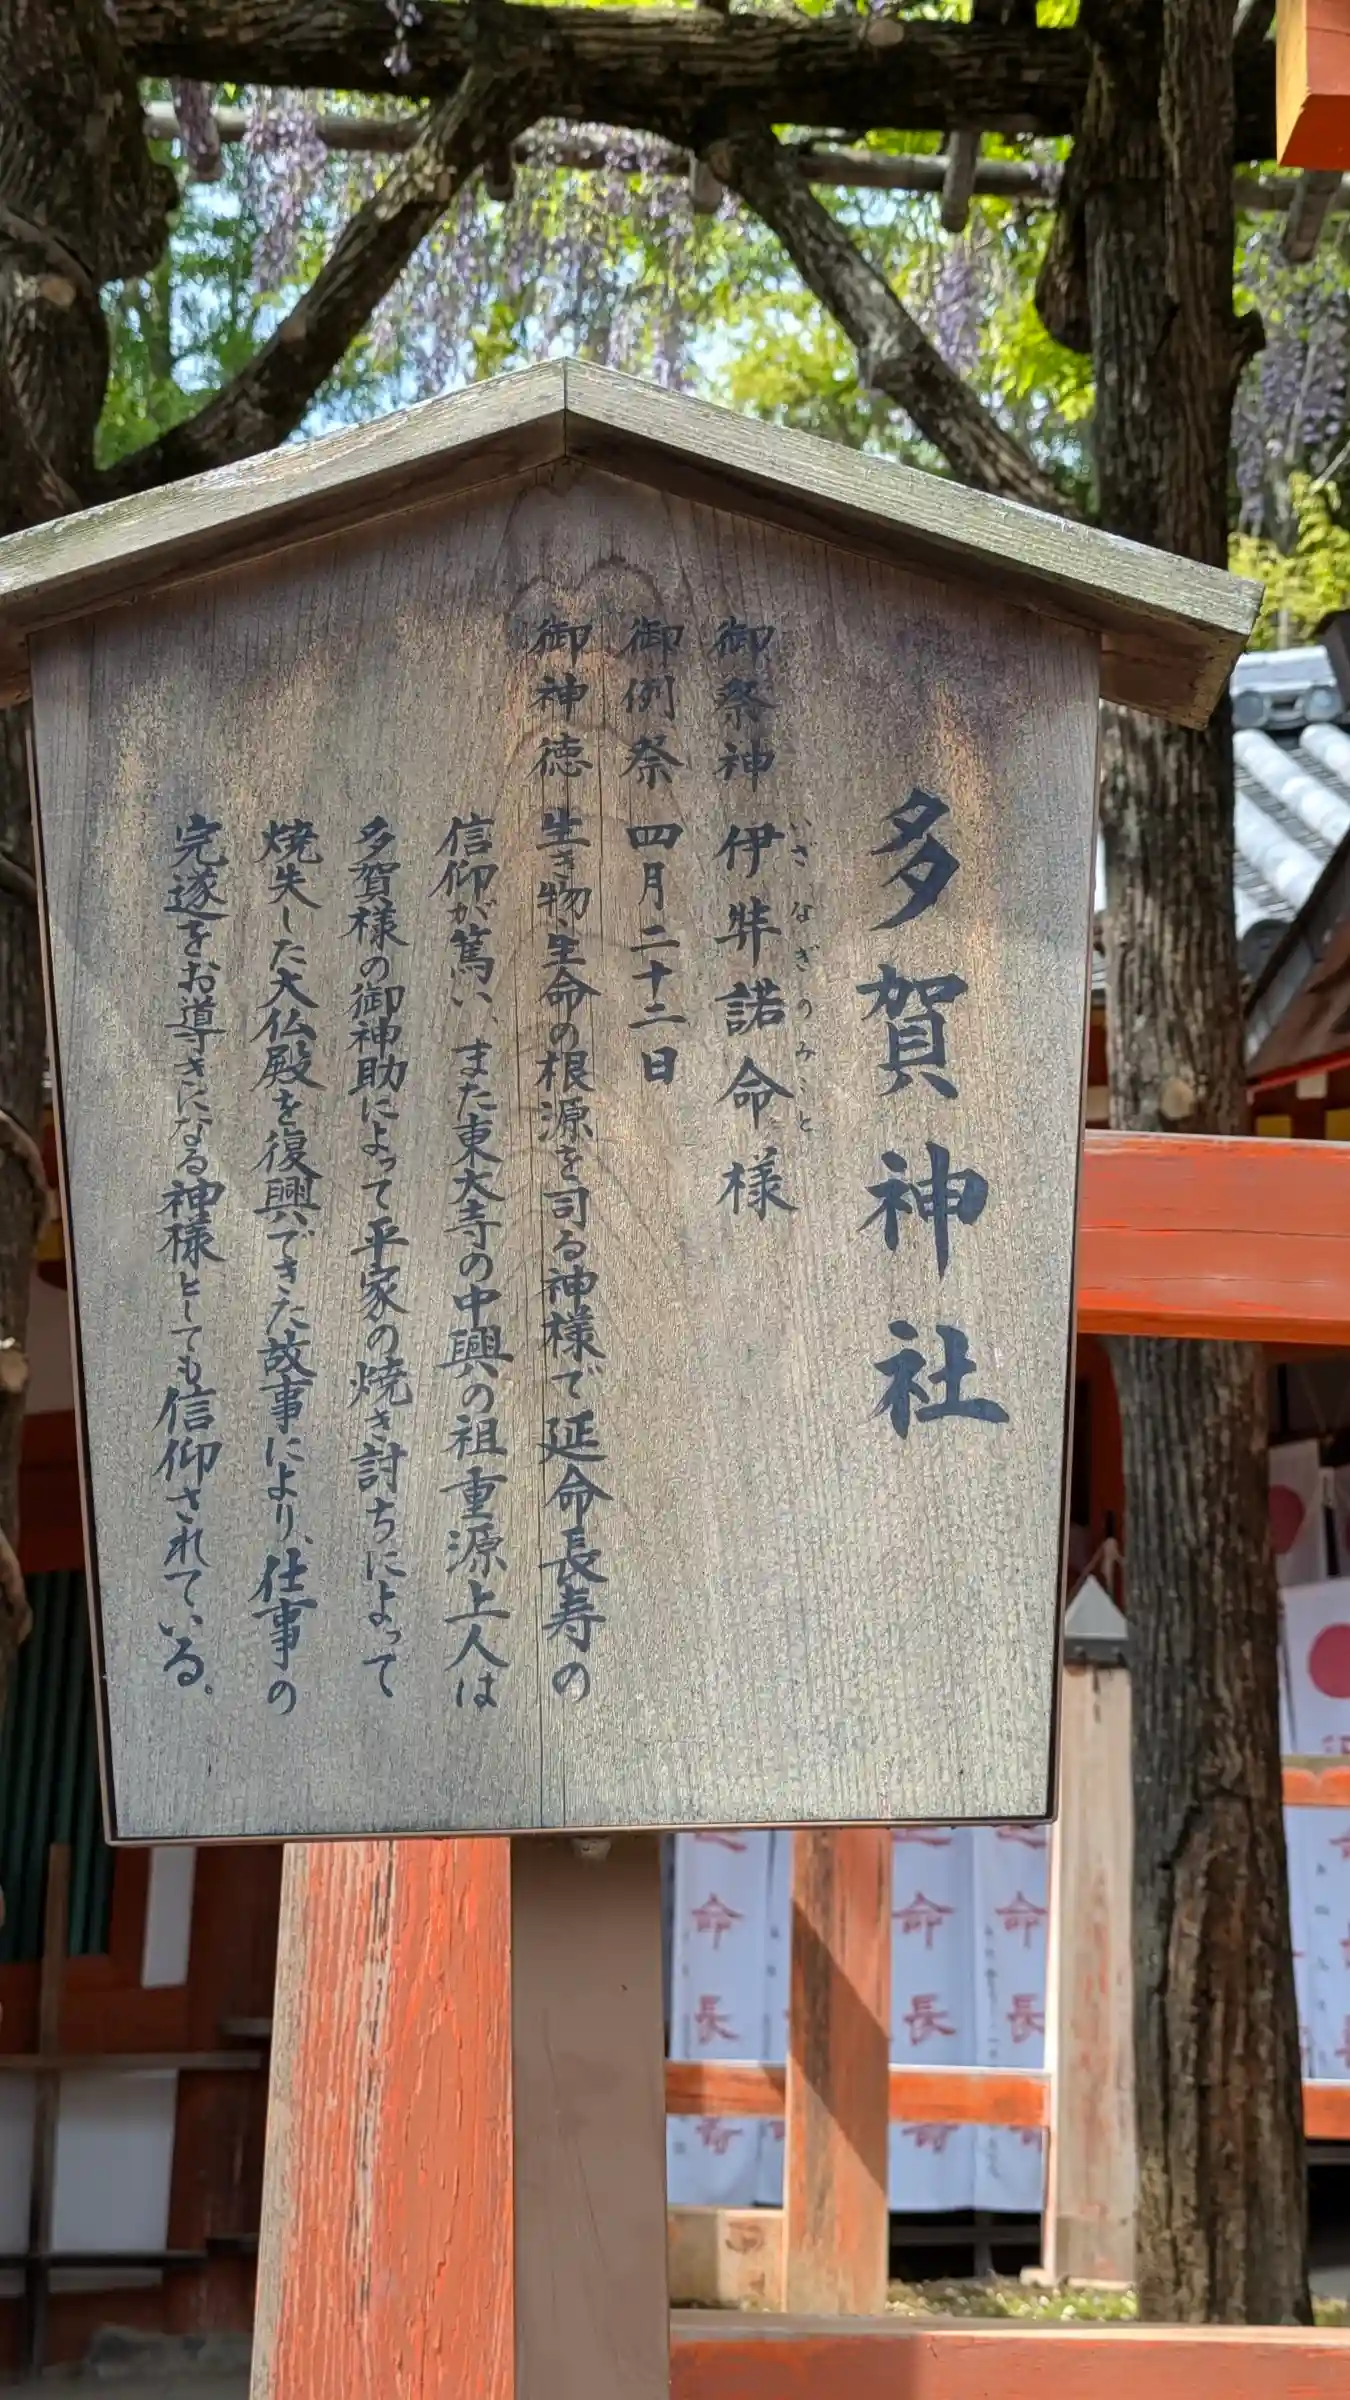 多賀神社
御祭神 伊弉諾命様
いざなぎのみこと
御例祭 四月二十二日
御神徳 生き物生命の根源を司る神様で延命長寿の
信仰が篤い、また東大寺の中興の祖重源上人は
多賀様の御神助によって平家の焼き討ちによって
焼失した大仏殿を復興できた故事により、仕事の
完遂をお導きになる神様としても信仰されている。
命長寿
命長寿
命長